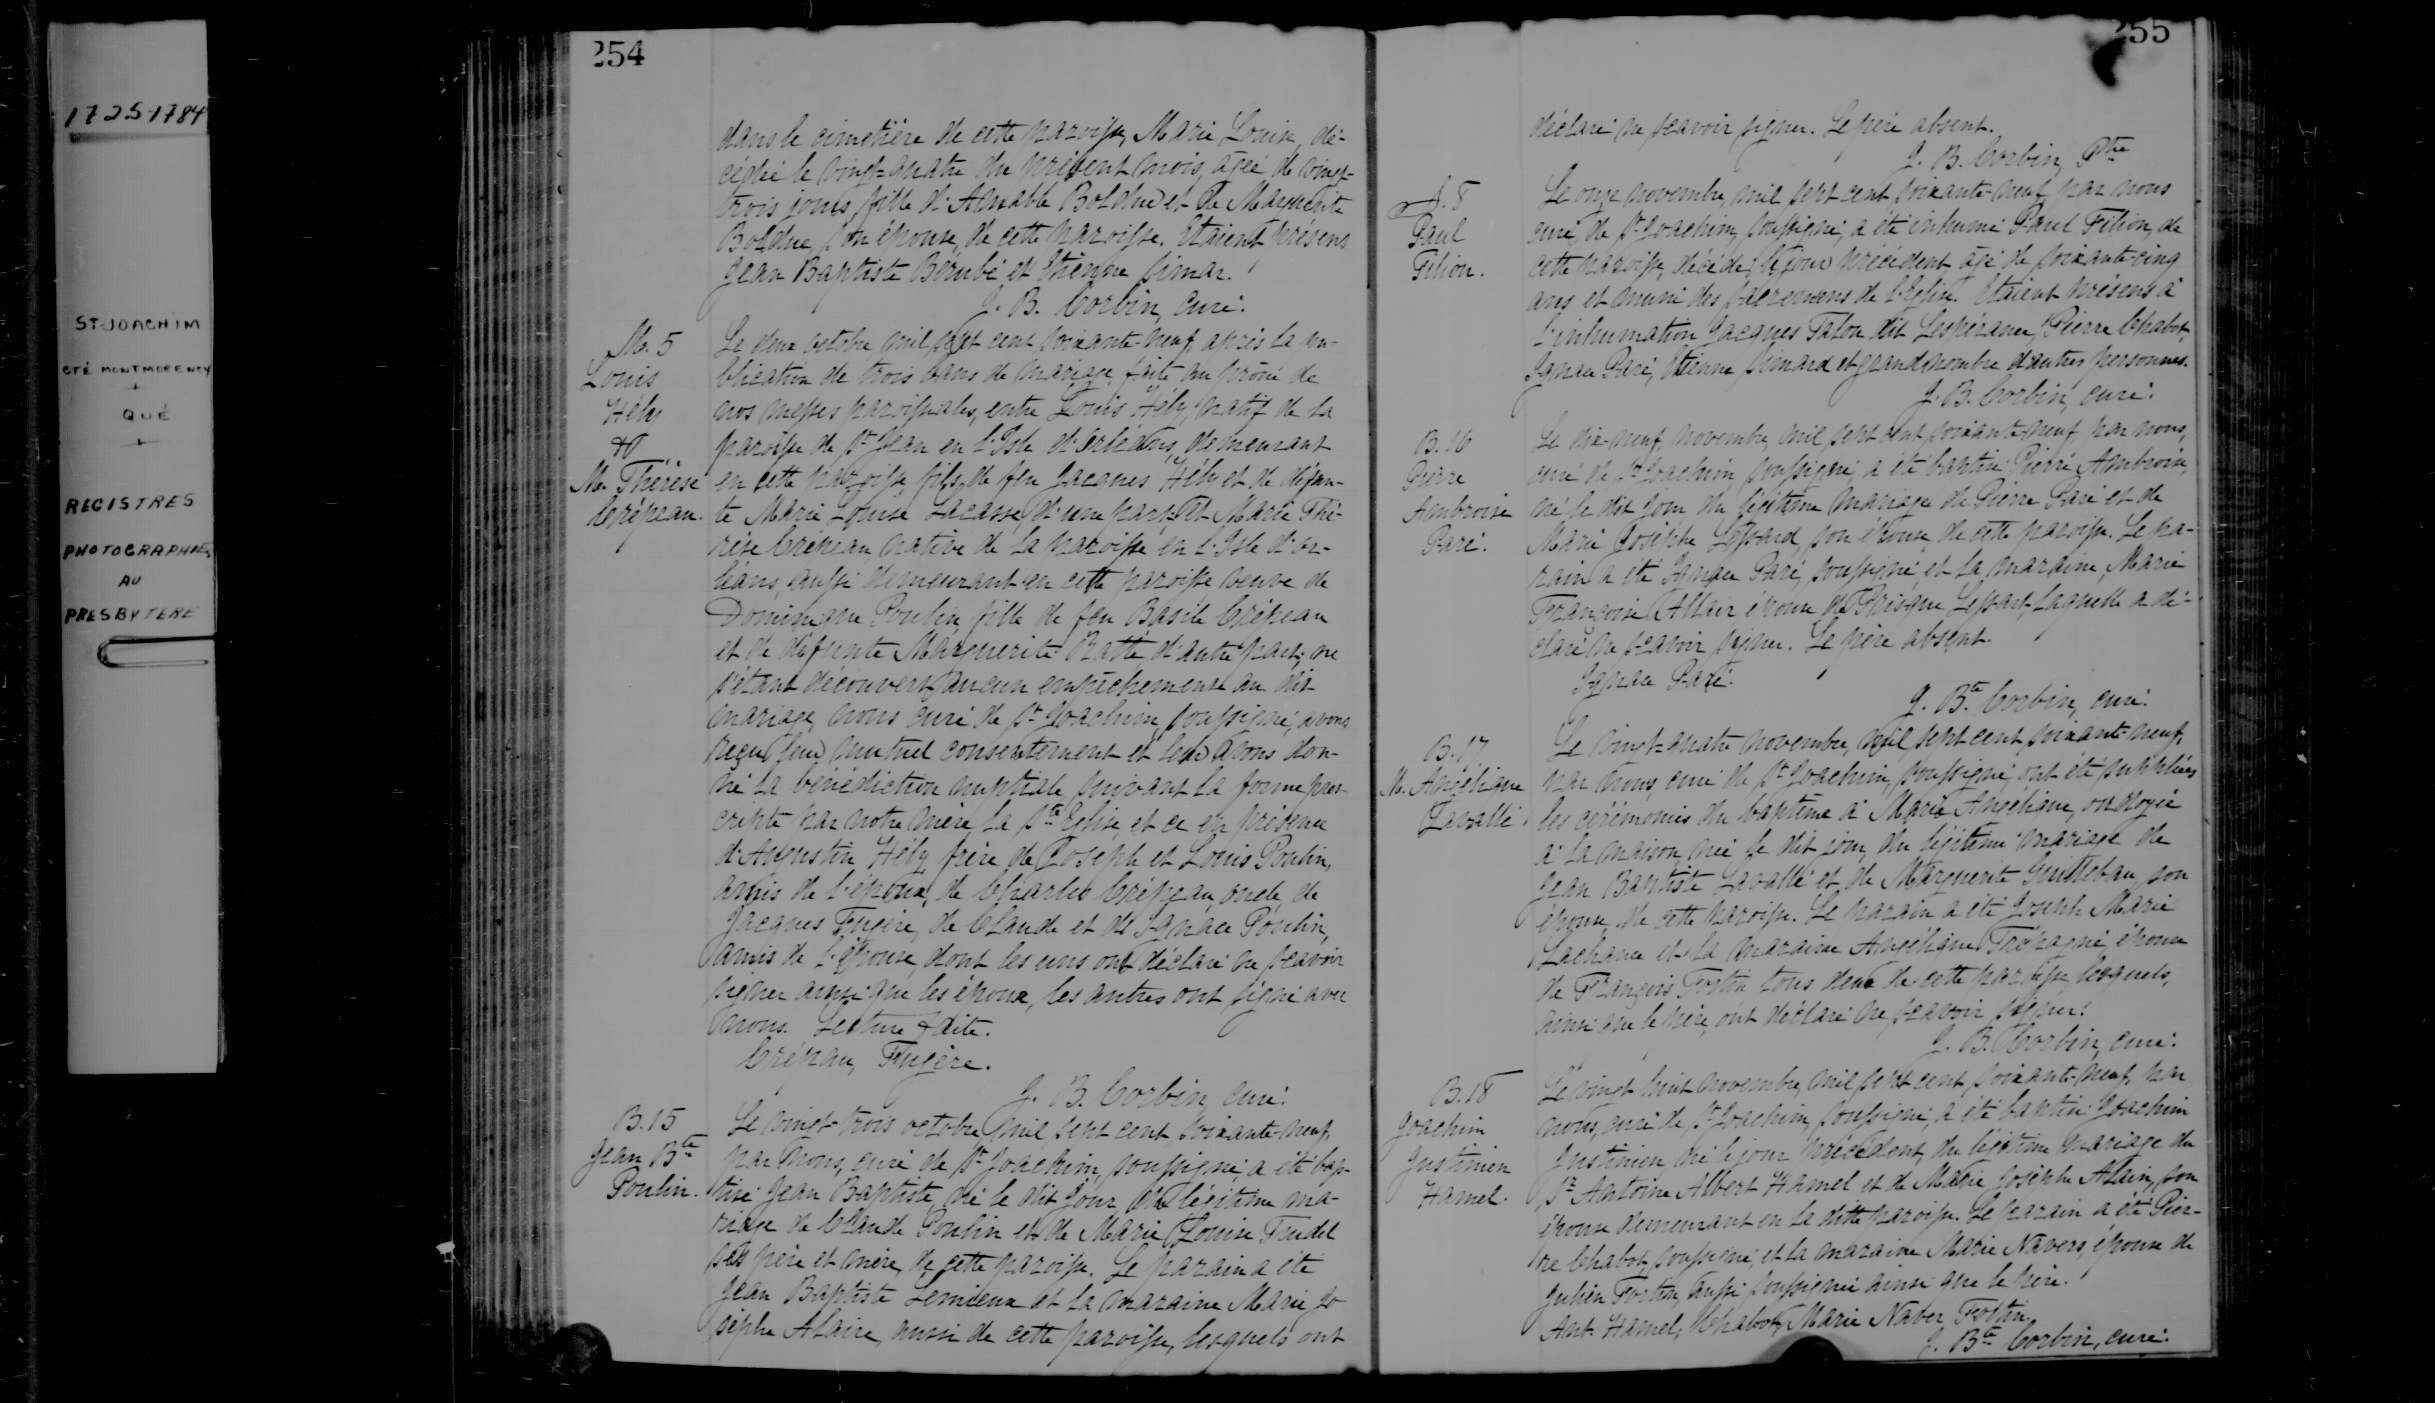 1725-1784
ST-JOACHIM
CTÉ MONTMORENCY
+
QUÉ
+
REGISTRES
PHOTOGRAPHIÉS
AU
PRESBYTERE
254
dans le cimetière de cette paroisse, Marie Louise, dé-
cédée le vingt-quatre du présent mois, âgée de vingt-
trois jours, fille d'Amable Bolduc et de Marguerite
Bolduc son épouse, de cette paroisse. Etaient présens
Jean Baptiste Bérubé et Etienne Simar.
J. B. Corbin, curé.
M. 5
Louis
Hély
&
M. Thérèse
Crépeau.
Le deux octobre mil sept cent soixante-neuf, après la pu-
blication de trois bans de mariage, faite au prône de
nos messes paroissiales, entre Louis Hély, natif de la
paroisse de St Jean en l'Isle d'Orléans, demeurant
en cette paroisse, fils de feu Jacques Hély et de défun-
te Marie Louise Lacasse, d'une part, et Marie Thé-
rèse Crépeau, native de la paroisse en l'Isle d'Or-
léans, aussi demeurant en cette paroisse, veuve de
Dominique Poulin, fille de feu Basile Crépeau
et de défunte Marguerite Ratté, d'autre part; ne
s'étant découvert aucun empêchement au dit
mariage, nous curé de St Joachim, soussigné, avons
reçu leur mutuel consentement et leur avons don-
né la bénédiction nuptiale suivant la forme pres-
cripte par notre mère la Ste Eglise, et ce en présence
d'Augustin Hély, frère de Joseph et Louis Poulin,
amis de l'époux, de Charles Crépeau, oncle, de
Jacques Fugère, de Claude et de Ignace Poulin,
amis de l'épouse, dont les uns ont déclaré ne sçavoir
signer ainsi que les époux, les autres ont signé avec
nous. Lecture faite.
Crépau, Fugère.
J. B. Corbin, curé.
B. 15
Jean Bte
Poulin.
Le vingt-trois octobre, mil sept cent soixante-neuf,
par nous, curé de St Joachim, soussigné, a été bap-
tisé Jean Baptiste, né le dit jour, du légitime ma-
riage de Claude Poulin et de Marie Louise Trudel
ses père et mère, de cette paroisse. Le parain a été
Jean Baptiste Lemieux et la maraine Marie Jo-
sephe Alaire, aussi de cette paroisse, lesquels ont
255
déclaré ne sçavoir signer. Le père absent.
J. B. Corbin, Ptre
S. 8
Paul
Filion.
Le onze novembre, mil sept cent soixante-neuf, par nous
curé de St Joachim, soussigné, a été inhumé Paul Filion, de
cette paroisse, décédé le jour précédent âgé de soixante-cinq
ans et muni des sacremens de l'Eglise. Etaient présens à
l'inhumation Jacques Talon dit Lespérance, Pierre Chabot,
Ignace Paré, Etienne Simard et grand nombre d'autres personnes.
J. B. Corbin, curé.
B. 16
Pierre
Ambroise
Paré.
Le dix-neuf novembre, mil sept cent soixante-neuf, par nous,
curé de St Joachim, soussigné, a été baptisé Pierre Ambroise,
né le dit jour du légitime mariage de Pierre Paré et de
Marie Josephe Lessard, son épouse, de cette paroisse. Le pa-
rain a été Ignace Paré, soussigné et la maraine, Marie
Françoise Allair épouse de Prisque Lessart, laquelle a dé-
claré ne sçavoir signer. Le père absent.
Ignace Paré.
J. Bte Corbin, curé.
B. 17
M. Angélique
Lavallé.
Le vingt-quatre novembre, mil sept cent soixante-neuf,
par nous, curé de St Joachim, soussigné, ont été suppléées
les cérémonies du baptême à Marie Angélique, ondoyée
à la maison née le dit jour, du légitime mariage de
Jean Baptiste Lavallé et de Marguerite Guillebau, son
épouse, de cette paroisse. Le parain a été Joseph Marie
Lachance et la maraine Angélique Trépagné, épouse
de François Fortin, tous deux de cette paroisse, lesquels,
ainsi que le père, ont déclaré ne sçavoir signer.
J. B. Corbin, curé.
B. 18
Joachim
Justinien
Hamel.
Le vingt huit novembre, mil sept cent soixante-neuf, par
nous, curé de St Joachim, soussigné, a été baptisé Joachim
Justinien né le jour précédent, du légitime mariage du
Sr Antoine Albert Hamel et de Marie Josephe Alain, son
épouse demeurant en la ditte paroisse. Le parain a été Pier-
re Chabot, soussigné, et la maraine Marie Navers, épouse de
Julien Fortin, aussi soussignée ainsi que le père.
Ant. Hamel, Chabot, Marie Naver Fortin.
J. Bte Corbin, curé.